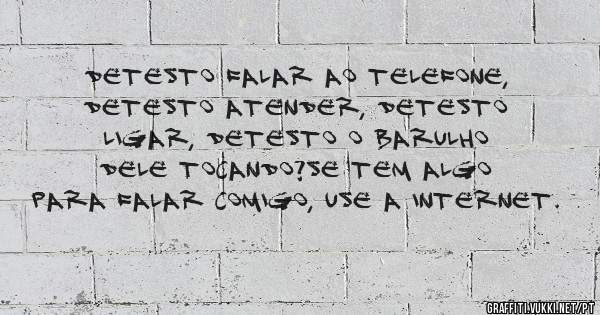 DETESTO FALAR AO TELEFONE,
DETESTO ATENDER, DETESTO
LIGAR, DETESTO O BARULHO
DELE TOCANDO?SE TEM ALGO
PARA FALAR COMIGO, USE A INTERNET.
GRAFFITI.VUKKI.NET/PT